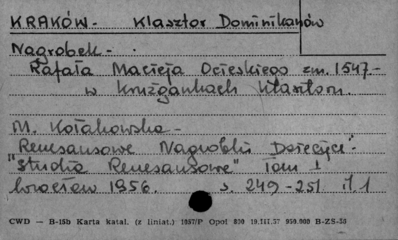 KRAKÓW - Klasztor Dominikanów
Nagrobek -
Rafała Macieja Ocieskiego zm. 1547 -
w krużgankach klasztoru.
M. Kołakowska -
Renesansowe Nagrobki Dziecięce -
"Studia Renesansowe" Tom I
Wrocław 1956. s. 249 - 251 il. 1
CWD — B-15b Karta katal. (z liniat.) 1957/P Opol 830 950.000 B-ZS-50